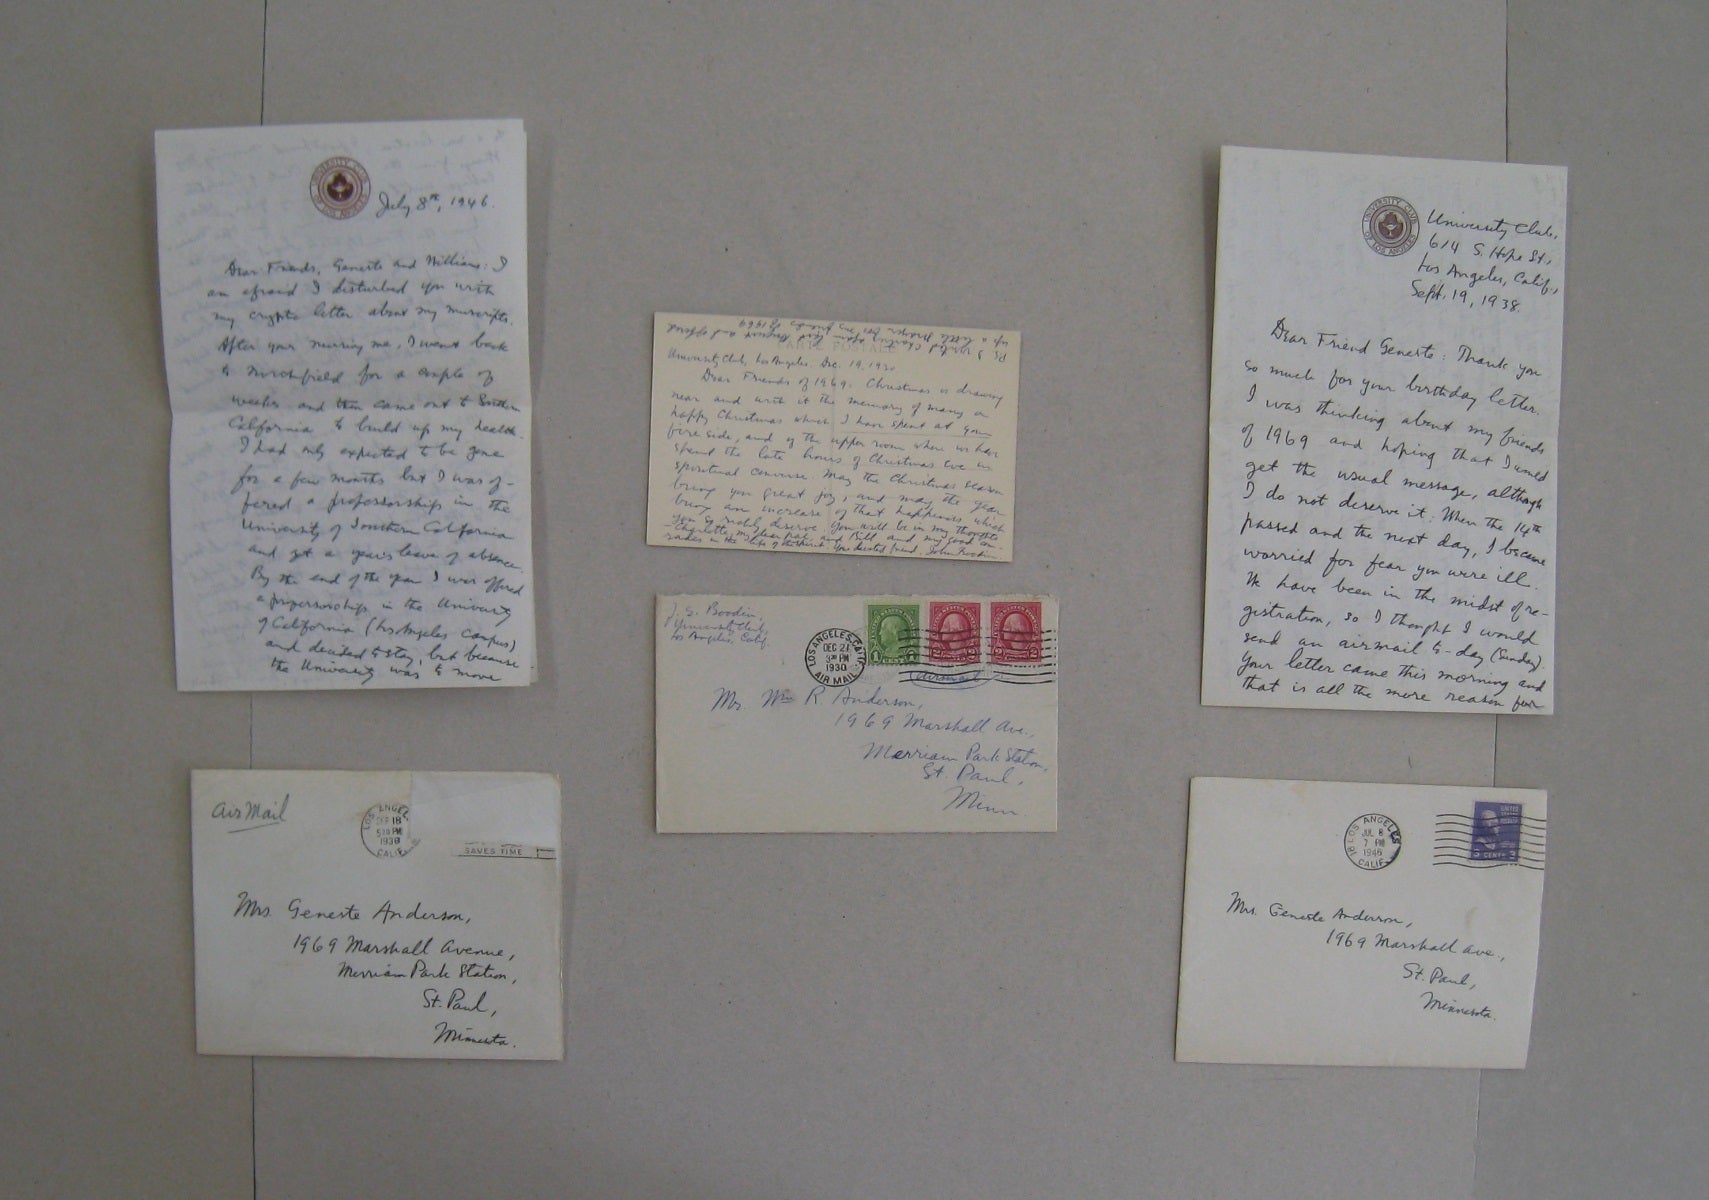 UNIVERSITY CLUB
OF LOS ANGELES
July 8th, 1946.
Dear Friends, Geneste and William: I
am afraid I disturbed you with
my cryptic letter about my
After your nursing me, I went back
to for a couple of
weeks and then came out to Southern
California to build up my health.
I had only expected to be gone
for a few months but I was of-
fered a professorship in the
University of Southern California
and got a year's leave of absence.
By the end of the year I was offered
a professorship in the University
of California (Los Angeles campus)
and decided to stay, but because
the University was to move
Air Mail
LOS ANGEL
SEP 18
5 PM
1938
CALIF.
SAVES TIME
Mrs. Geneste Anderson,
1969 Marshall Avenue,
Merriam Park Station,
St. Paul,
Minnesota.
PS I
CARTE POSTALE
University Club, Los Angeles, Dec. 19, 1930
Dear Friends of 1969: Christmas is drawing
near and with it the memory of many a
happy Christmas which I have spent at your
fireside, and of the upper room where we have
spent the late hours of Christmas Eve in
spiritual converse. May the Christmas season
bring you great joy, and may the year
bring an increase of that happiness which
you so nobly deserve. You will be in my thoughts
Charlotte, my dear pal, and Bill and my good com-
rades in the life of the spirit. Your devoted friend, John Boodin.
J. E. Boodin,
University Club,
Los Angeles, Calif.
LOS ANGELES, CALIF.
DEC 21
3 PM
1930
AIR MAIL
1
2
2
Airmail
Mrs. Wm R. Anderson,
1969 Marshall Ave.,
Merriam Park Station,
St. Paul,
Minn.
UNIVERSITY CLUB
OF LOS ANGELES
University Club,
614 S. Hope St.,
Los Angeles, Calif.,
Sept. 19, 1938.
Dear Friend Geneste: Thank you
so much for your birthday letter.
I was thinking about my friends
of 1969 and hoping that I would
get the usual message, although
I do not deserve it. When the 14th
passed and the next day, I became
worried for fear you were ill.
We have been in the midst of re-
gistration, so I thought I would
send an airmail to-day (Sunday).
Your letter came this morning and
that is all the more reason for
LOS ANGELES
18
JUL 8
7 PM
1946
CALIF.
UNITED
STATES
POSTAGE
3 CENTS 3
Mrs. Geneste Anderson,
1969 Marshall Ave.,
St. Paul,
Minnesota.